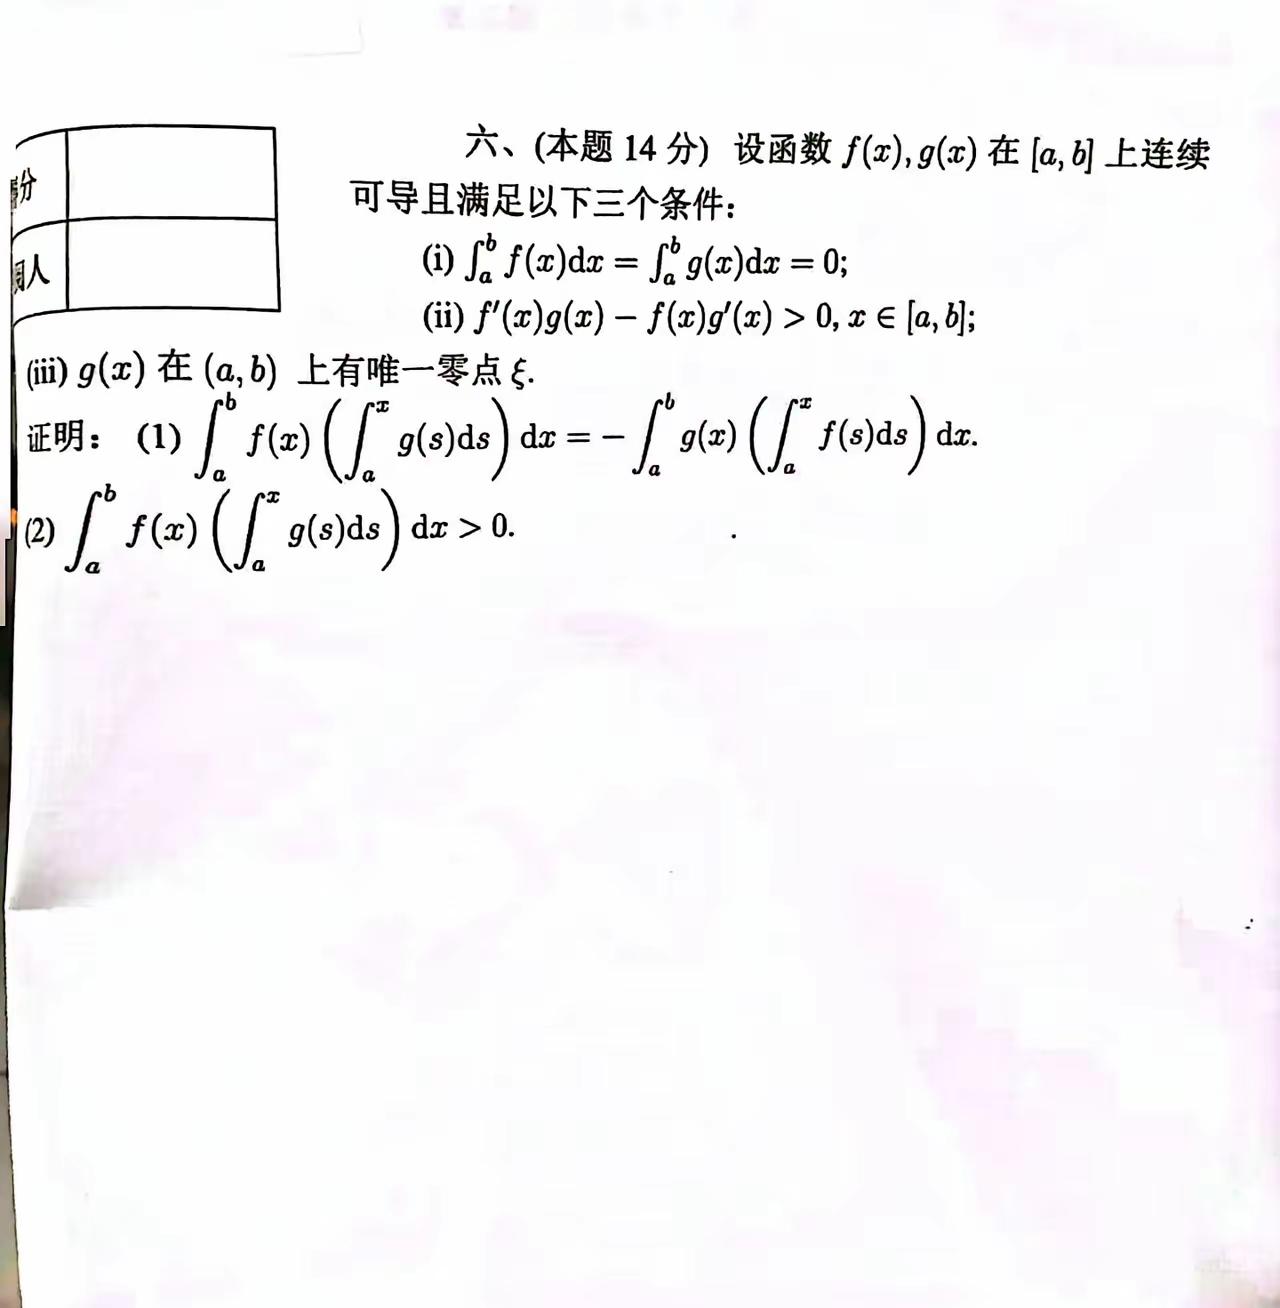 六、(本题 14 分) 设函数 f(x), g(x) 在 [a, b] 上连续
可导且满足以下三个条件:
分
人
(i) ∫_a^b f(x)dx = ∫_a^b g(x)dx = 0;
(ii) f′(x)g(x) − f(x)g′(x) > 0, x ∈ [a, b];
(iii) g(x) 在 (a, b) 上有唯一零点 ξ.
证明: (1) ∫_a^b f(x) (∫_a^x g(s)ds) dx = − ∫_a^b g(x) (∫_a^x f(s)ds) dx.
(2) ∫_a^b f(x) (∫_a^x g(s)ds) dx > 0.